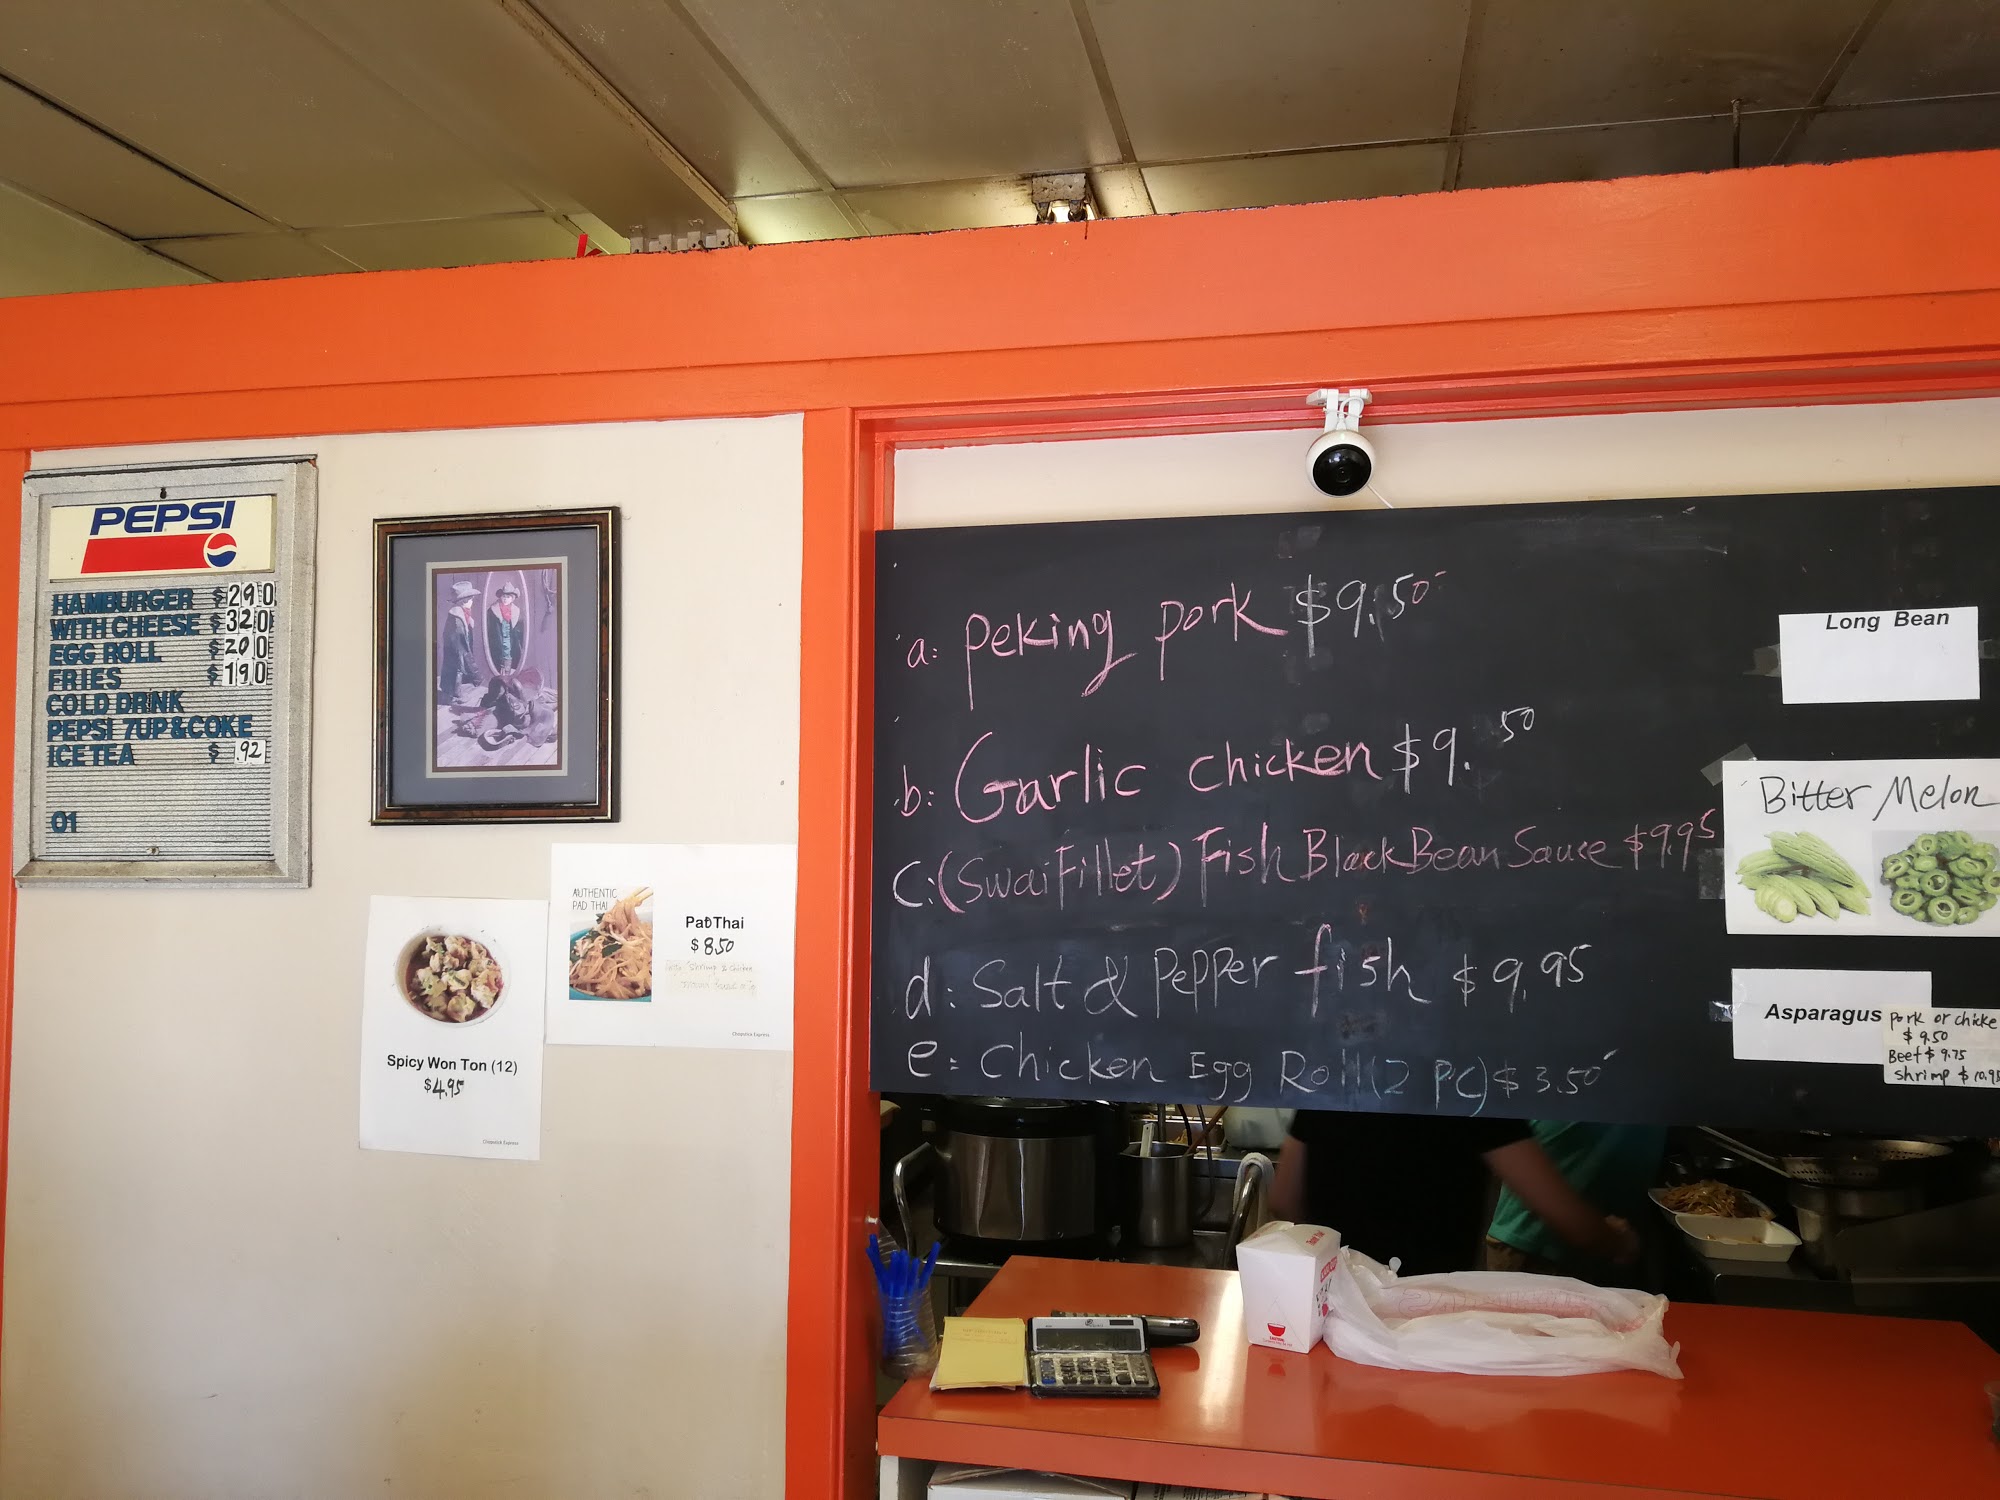 PEPSI
HAMBURGER $2.90
WITH CHEESE $3.20
EGG ROLL $2.00
FRIES $1.90
COLD DRINK
PEPSI 7UP&COKE
ICE TEA $.92
01
Spicy Won Ton (12)
$4.95
Chopstick Express
AUTHENTIC
PAD THAI
Pad Thai
$8.50
shrimp & chicken
Chopstick Express
a: Peking pork $9.50
b: Garlic chicken $9.50
C: (Swai Fillet) Fish Black Bean Sauce $9.95
d: Salt & Pepper fish $9.95
e: Chicken Egg Roll (2 PC) $3.50
Long Bean
Bitter Melon
Asparagus
Pork or chicke
$9.50
Beef $9.75
shrimp $10.95